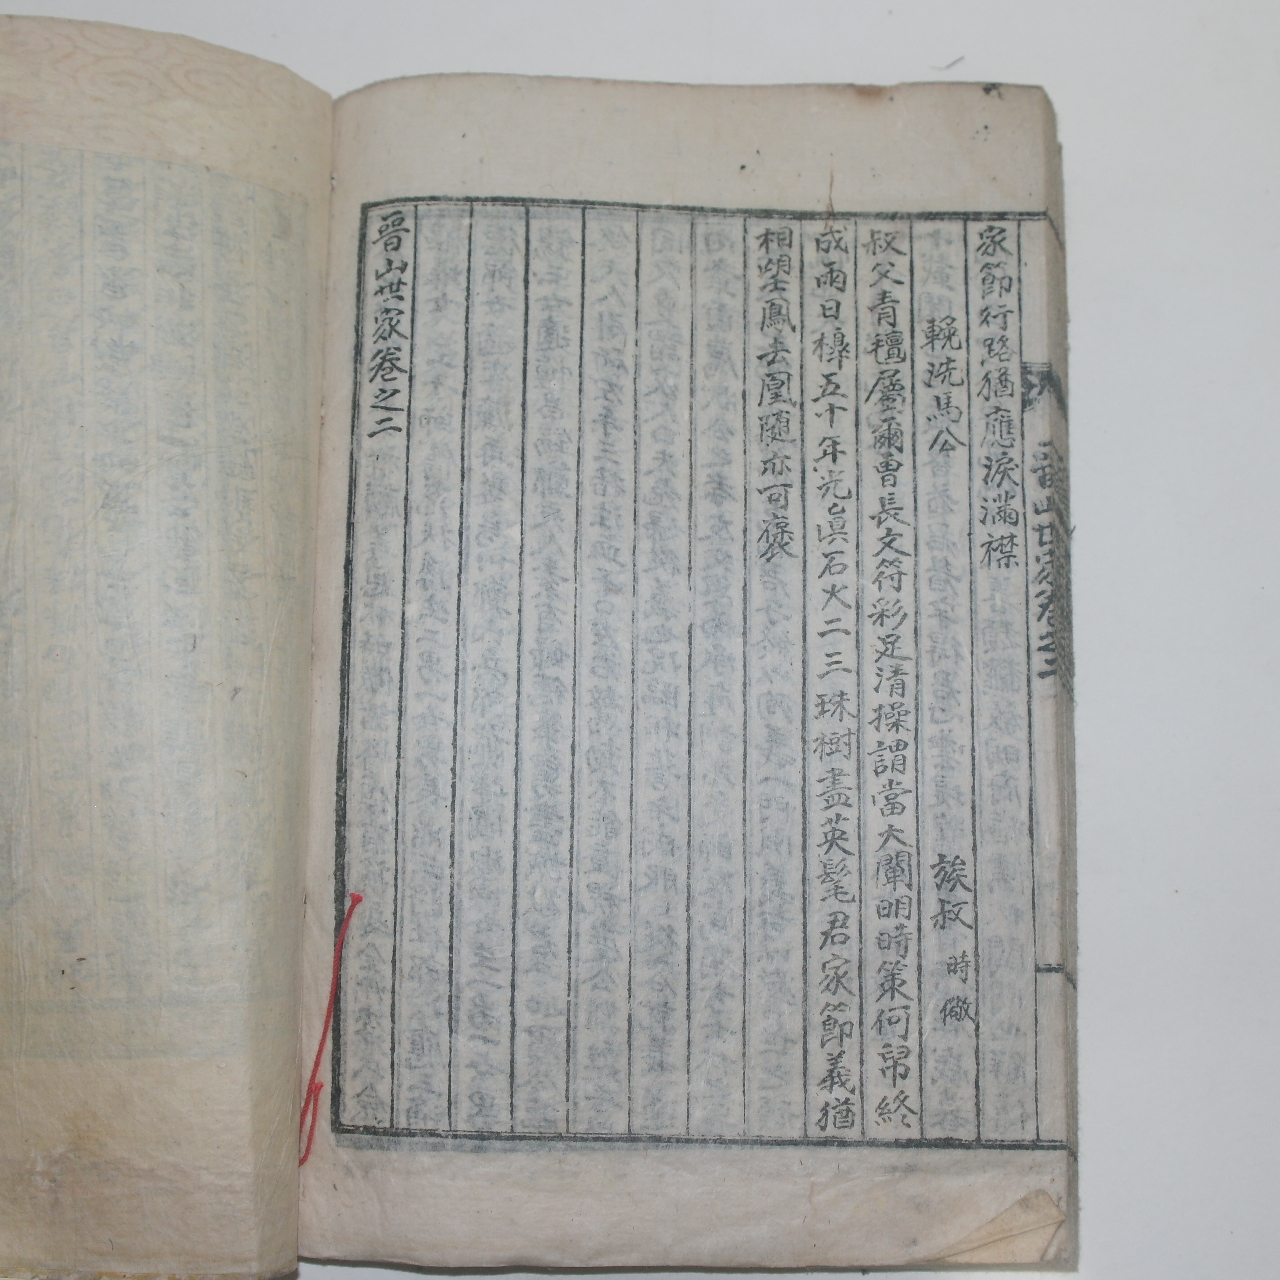 家節行路猶應淚滿襟
輓洗馬公 族叔 時儆
叔父青氊屬爾曹長文符彩足清操謂當大闡明時策何啚終
成雨日橰五十年光真石火二三珠樹盡英髦君家節義猶
相望鳳去凰隨亦可褒
晋山世家卷之二
晋山世家卷之二